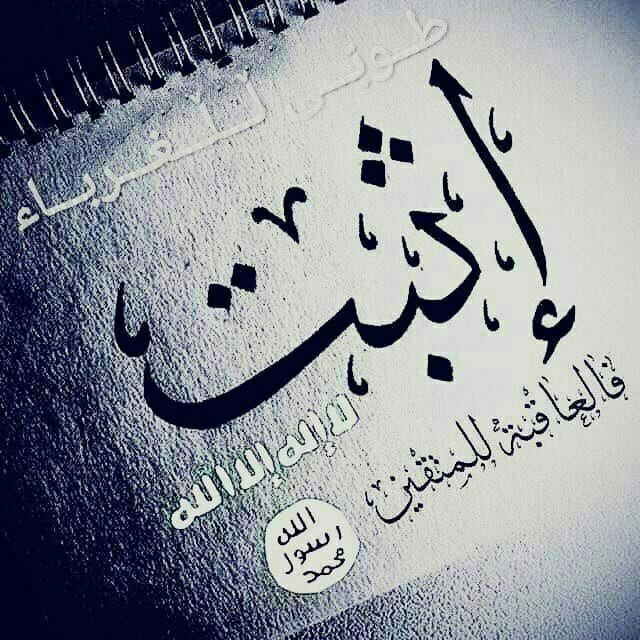 طوبى للغرباء
إثبت
فالعاقبة للمتقين
لا إله إلا الله
الله
رسول
محمد